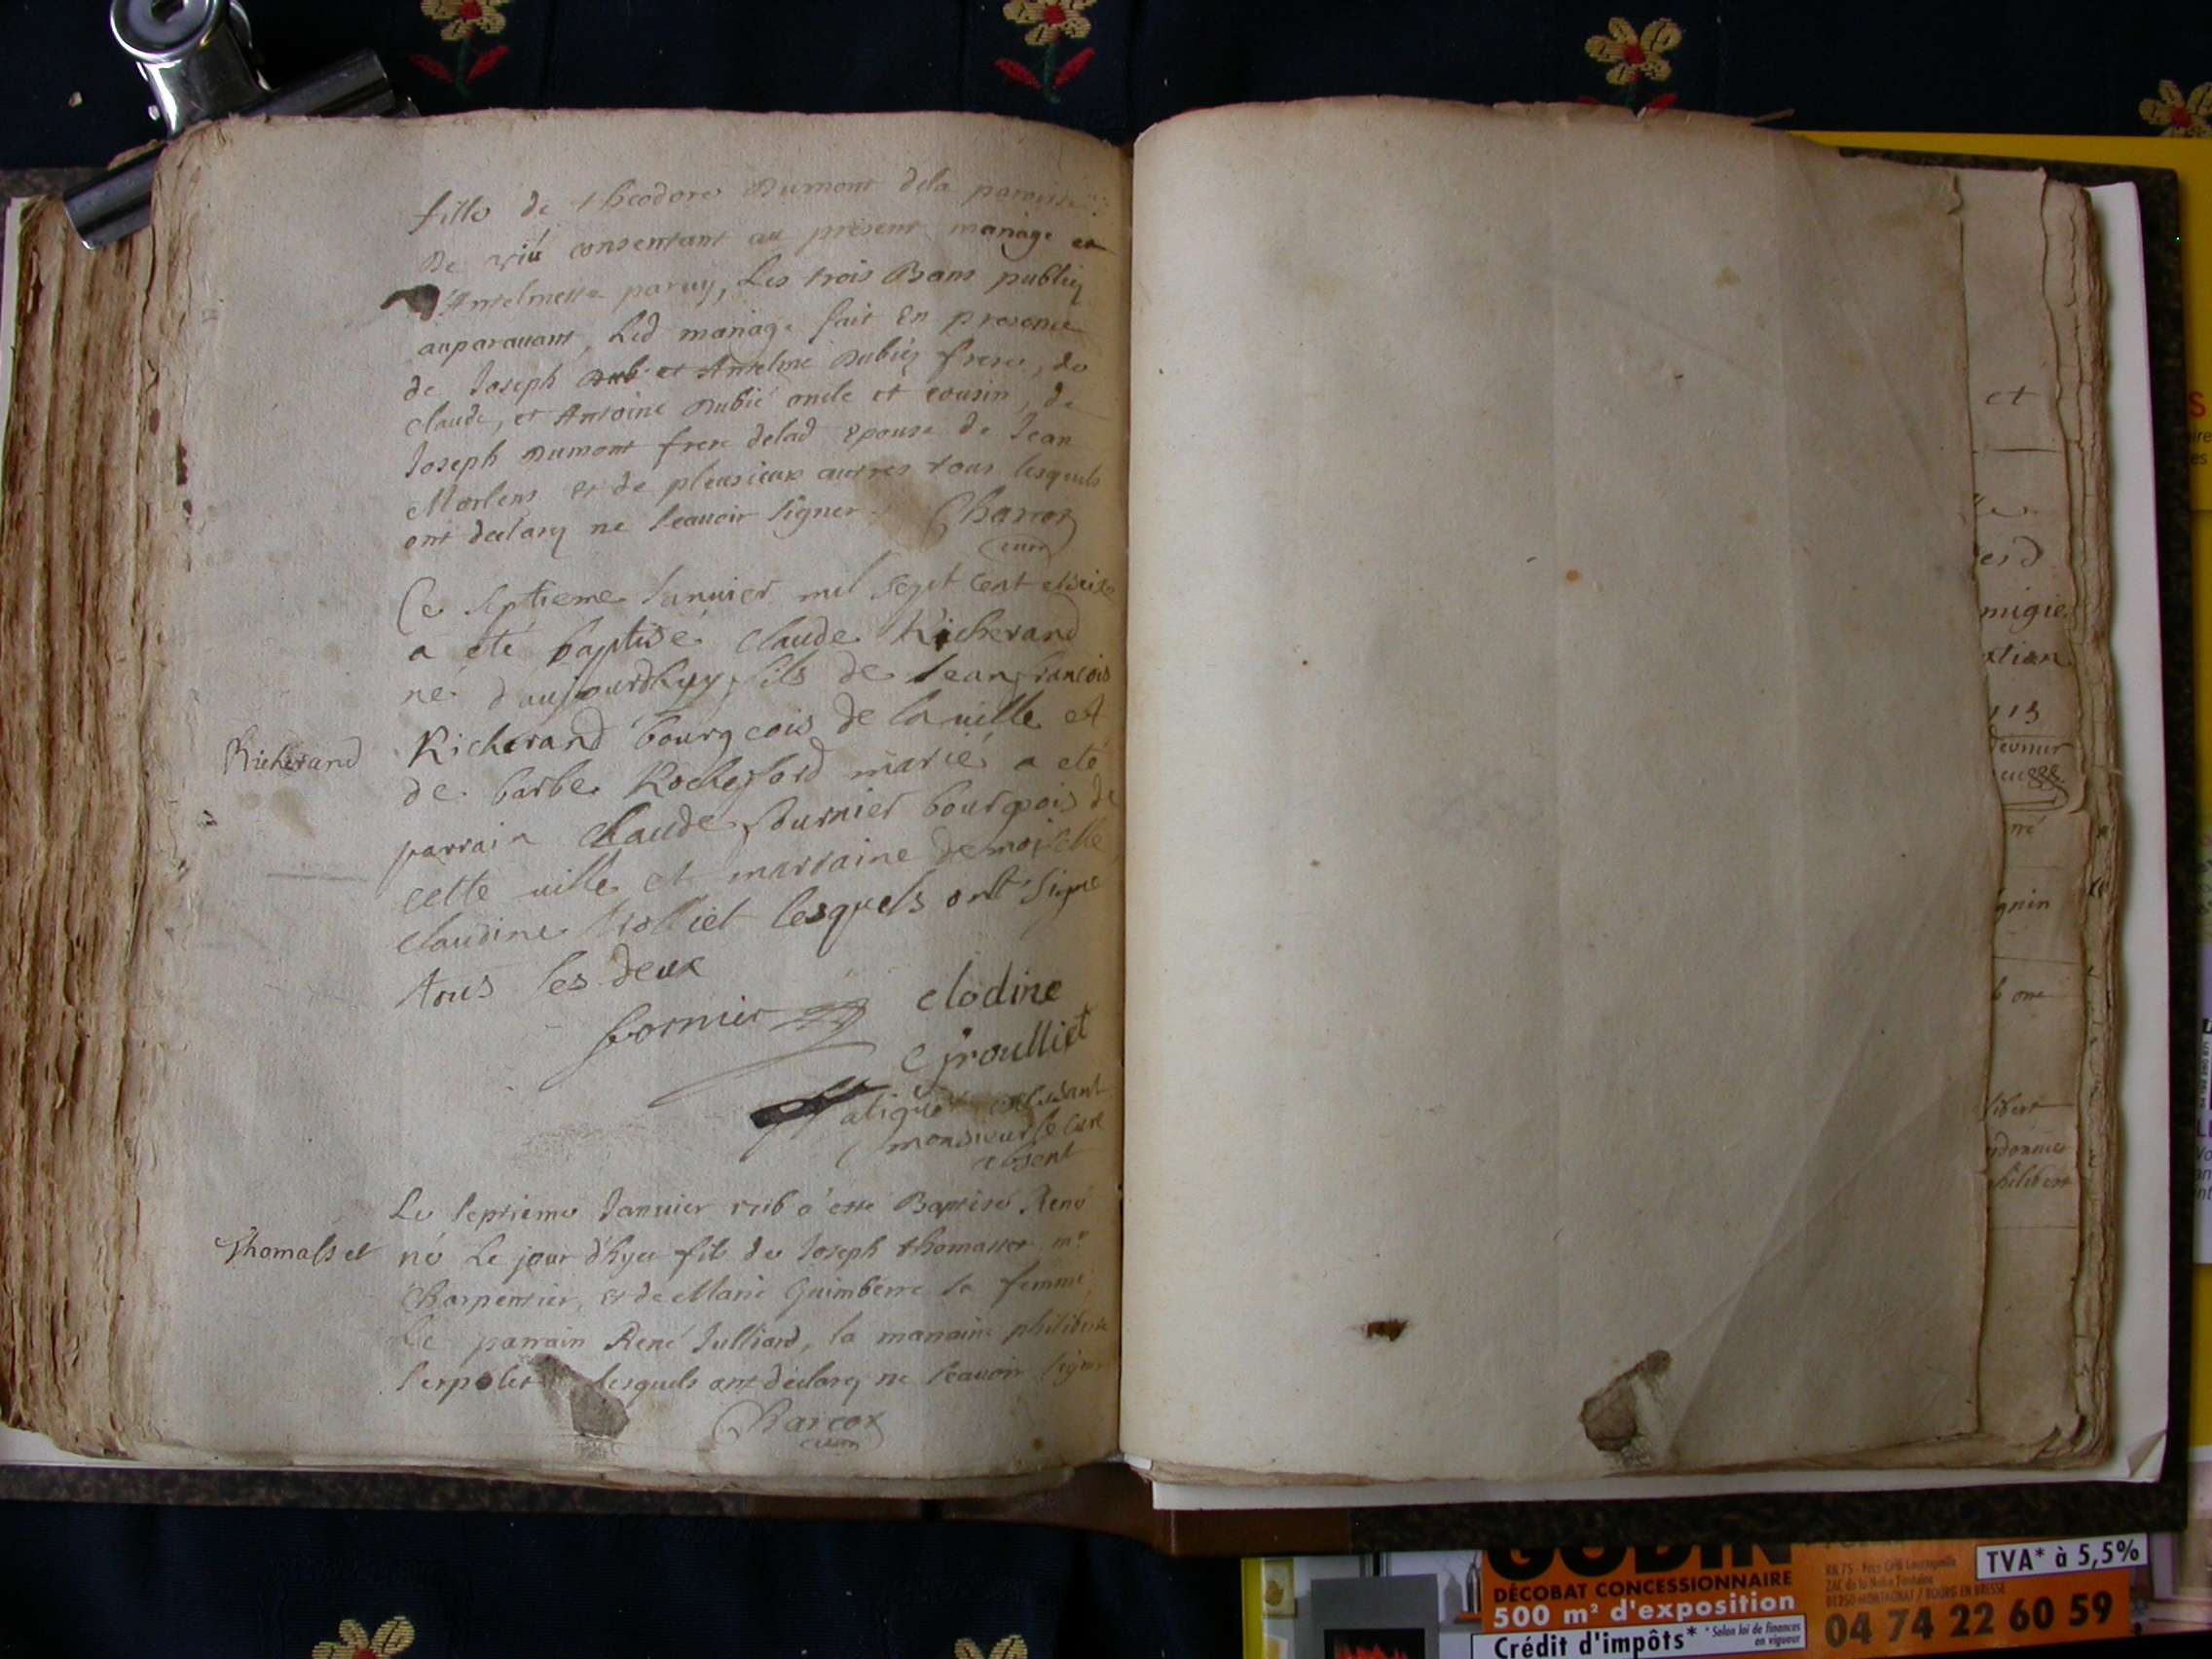 fille de theodore Dumont dela paroisse
De viú consentant au present mariage et
d'Antelmette paruy, Les trois Bans publiez
auparauant, Led mariage fait En presence
de Joseph Dub et Antelme Dubiez freres, de
claude, et Antoine Dubié oncle et cousin, de
Joseph Dumont frere delad Epouse de Jean
Morlens et de pleusieurs autres tous lesquels
ont declarez ne scauoir signer. Charcot
curé
Ce septieme Januier mil sept cent et seize
a eté baptisé claude Richerand
né d'aujourdhuy fils de Jean francois
Richerand
Richerand bourgeois de la uille et
de barbe Rocheford mariés a eté
parrain claude fournier bourgeois de
cette uille et marraine demoiselle
claudine lesquels ont signé
tous les deux
fornier clodine
groulliet
monsieur le curé
absent
Le septieme Januier a esté Baptisé René
Thomasset
né Le jour d'hyer fils de Joseph thomasset mre
Charpentier, et de Marie Guimberre sa femme,
Le parrain René Julliard, la marraine philiberte
serpolet lesquels ont déclarez ne scauoir signer
Charcot
curé
et
erd
migie
ation
113
né
gnin
libert
philibert
GODIN
DÉCOBAT CONCESSIONNAIRE
500 m² d'exposition
Crédit d'impôts* *Selon loi de finances
en vigueur
TVA* à 5,5%
04 74 22 60 59